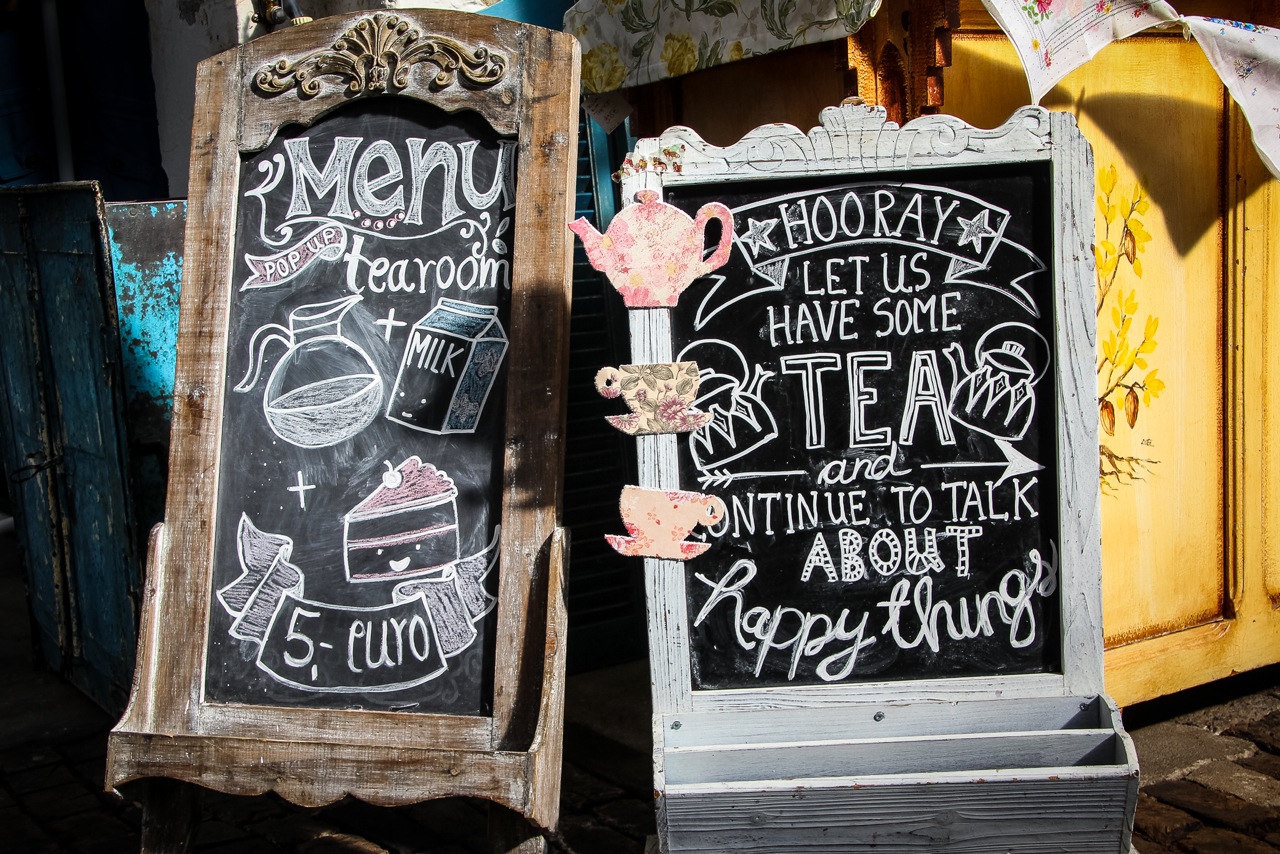 Menu
POP-UP
tearoom
+
MILK
+
5,- euro
HOORAY
LET US
HAVE SOME
TEA
and
CONTINUE TO TALK
ABOUT
happy things